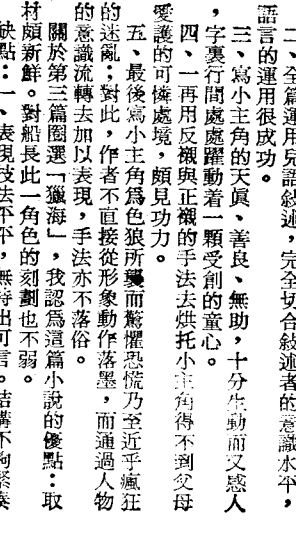 二、全篇運用兒語敍述，完全切合敍述者的意識水平，
語言的運用很成功。
三、寫小主角的天眞、善良、無助，十分生動而又感人
，字裏行間處處躍動着一顆受創的童心。
四、一再用反襯與正襯的手法去烘托小主角得不到父母
愛護的可憐處境，頗見功力。
五、最後寫小主角爲色狼所襲而驚懼恐慌乃至近乎瘋狂
的迷亂：對此，作者不直接從形象動作落墨，而通過人物
的意識流轉去加以表現，手法亦不落俗。
關於第三篇圈選「獵海」，我認爲這篇小說的優點：取
材頗新鮮。對船長此一角色的刻劃也不弱。
缺點：一、表現技法平平，無特出可言。結構不夠緊湊